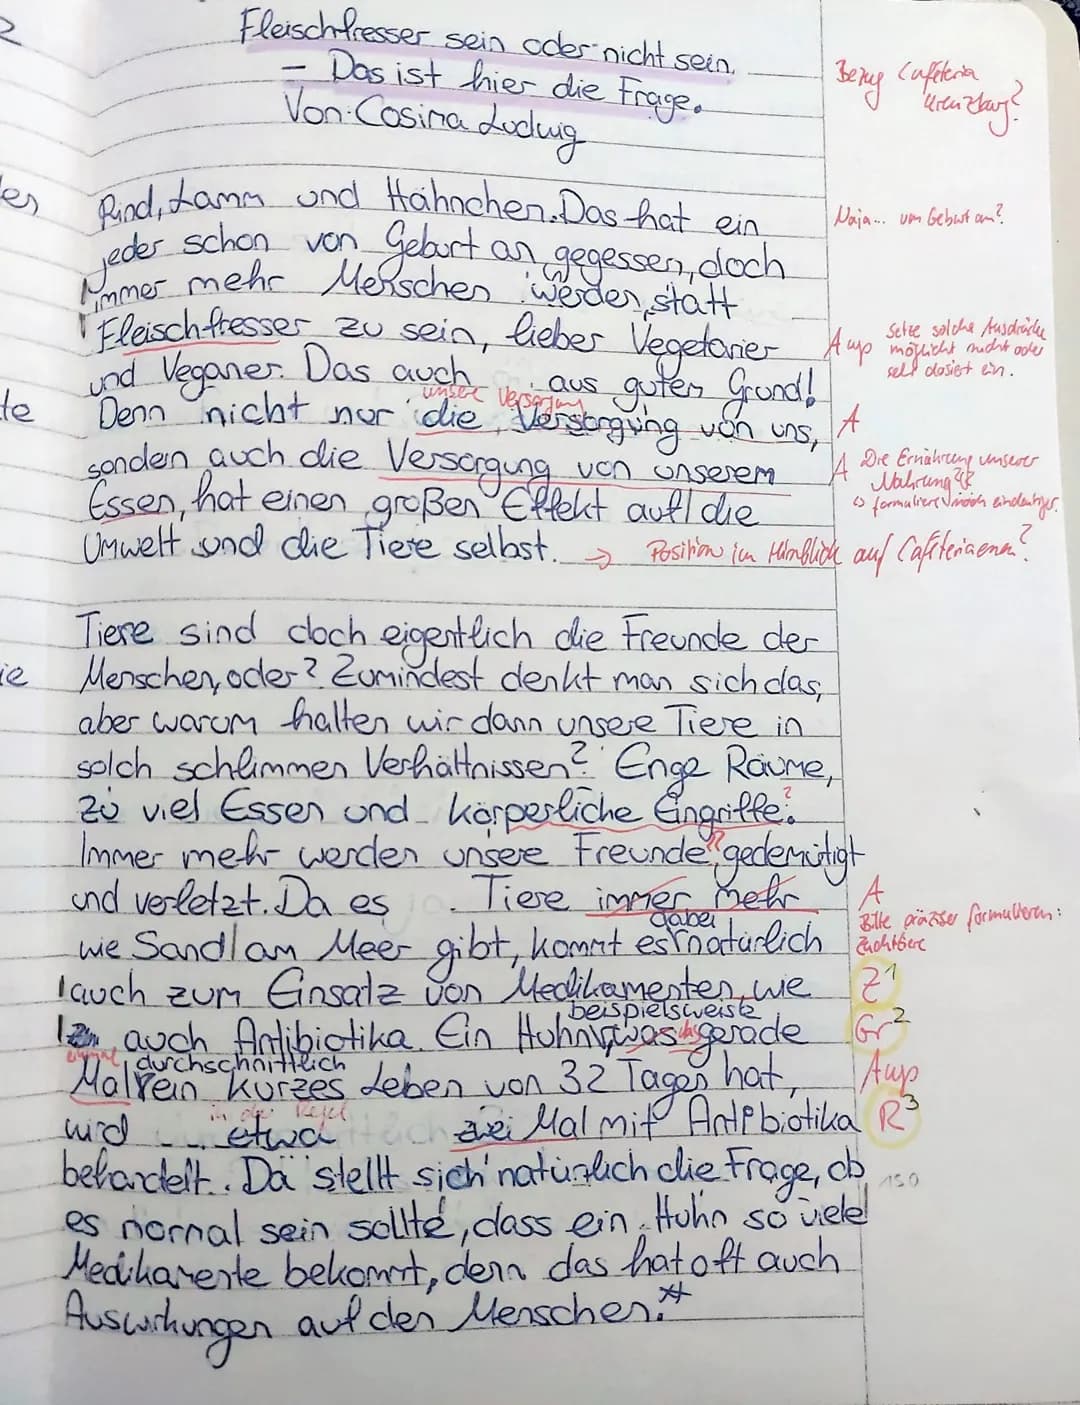 Fleischfresser sein oder nicht sein.
– Das ist hier die Frage.
Von: Cosima Ludwig
Bezug Cafeteria
Rind, Lamm und Hähnchen. Das hat ein
Naja... von Geburt an?
jeder schon von Geburt an gegessen, doch
immer mehr Menschen werden, statt
Fleischfresser zu sein, lieber Vegetarier
A
Setze solche Ausdrücke
möglichst nicht oder
sehr dosiert ein.
und Veganer. Das auch aus gutem Grund!
unsere Versorgung
Denn nicht nur die Versorgung von uns,
A
sonden auch die Versorgung von unserem
A Die Ernährung unserer
Nahrung??
Essen, hat einen großen Effekt auf die
formuliere noch eindeutiger.
Umwelt und die Tiere selbst.
→ Position im Hinblick auf Cafeteriaessen?
Tiere sind doch eigentlich die Freunde der
Menschen, oder? Zumindest denkt man sich das,
aber warum halten wir dann unsere Tiere in
solch schlimmen Verhältnissen? Enge Räume,
zu viel Essen und körperliche Eingriffe.
?
Immer mehr werden unsere Freunde gedemütigt
und verletzt. Da es Tiere immer mehr
A
Bitte präziser formulieren:
dabei
wie Sand am Meer gibt, kommt es natürlich
auch zum Einsatz von Medikamenten, wie
Z1
beispielsweise
auch Antibiotika. Ein Huhn, was gerade
das
Gr2
einmal
durchschnittlich
Mal ein kurzes Leben von 32 Tagen hat,
in der Regel
wird etwa zwei Mal mit Antibiotika
R3
behandelt. Da stellt sich natürlich die Frage, ob
150
es normal sein sollte, dass ein Huhn so viele
Medikamente bekommt, denn das hat oft auch
Auswirkungen auf den Menschen.*